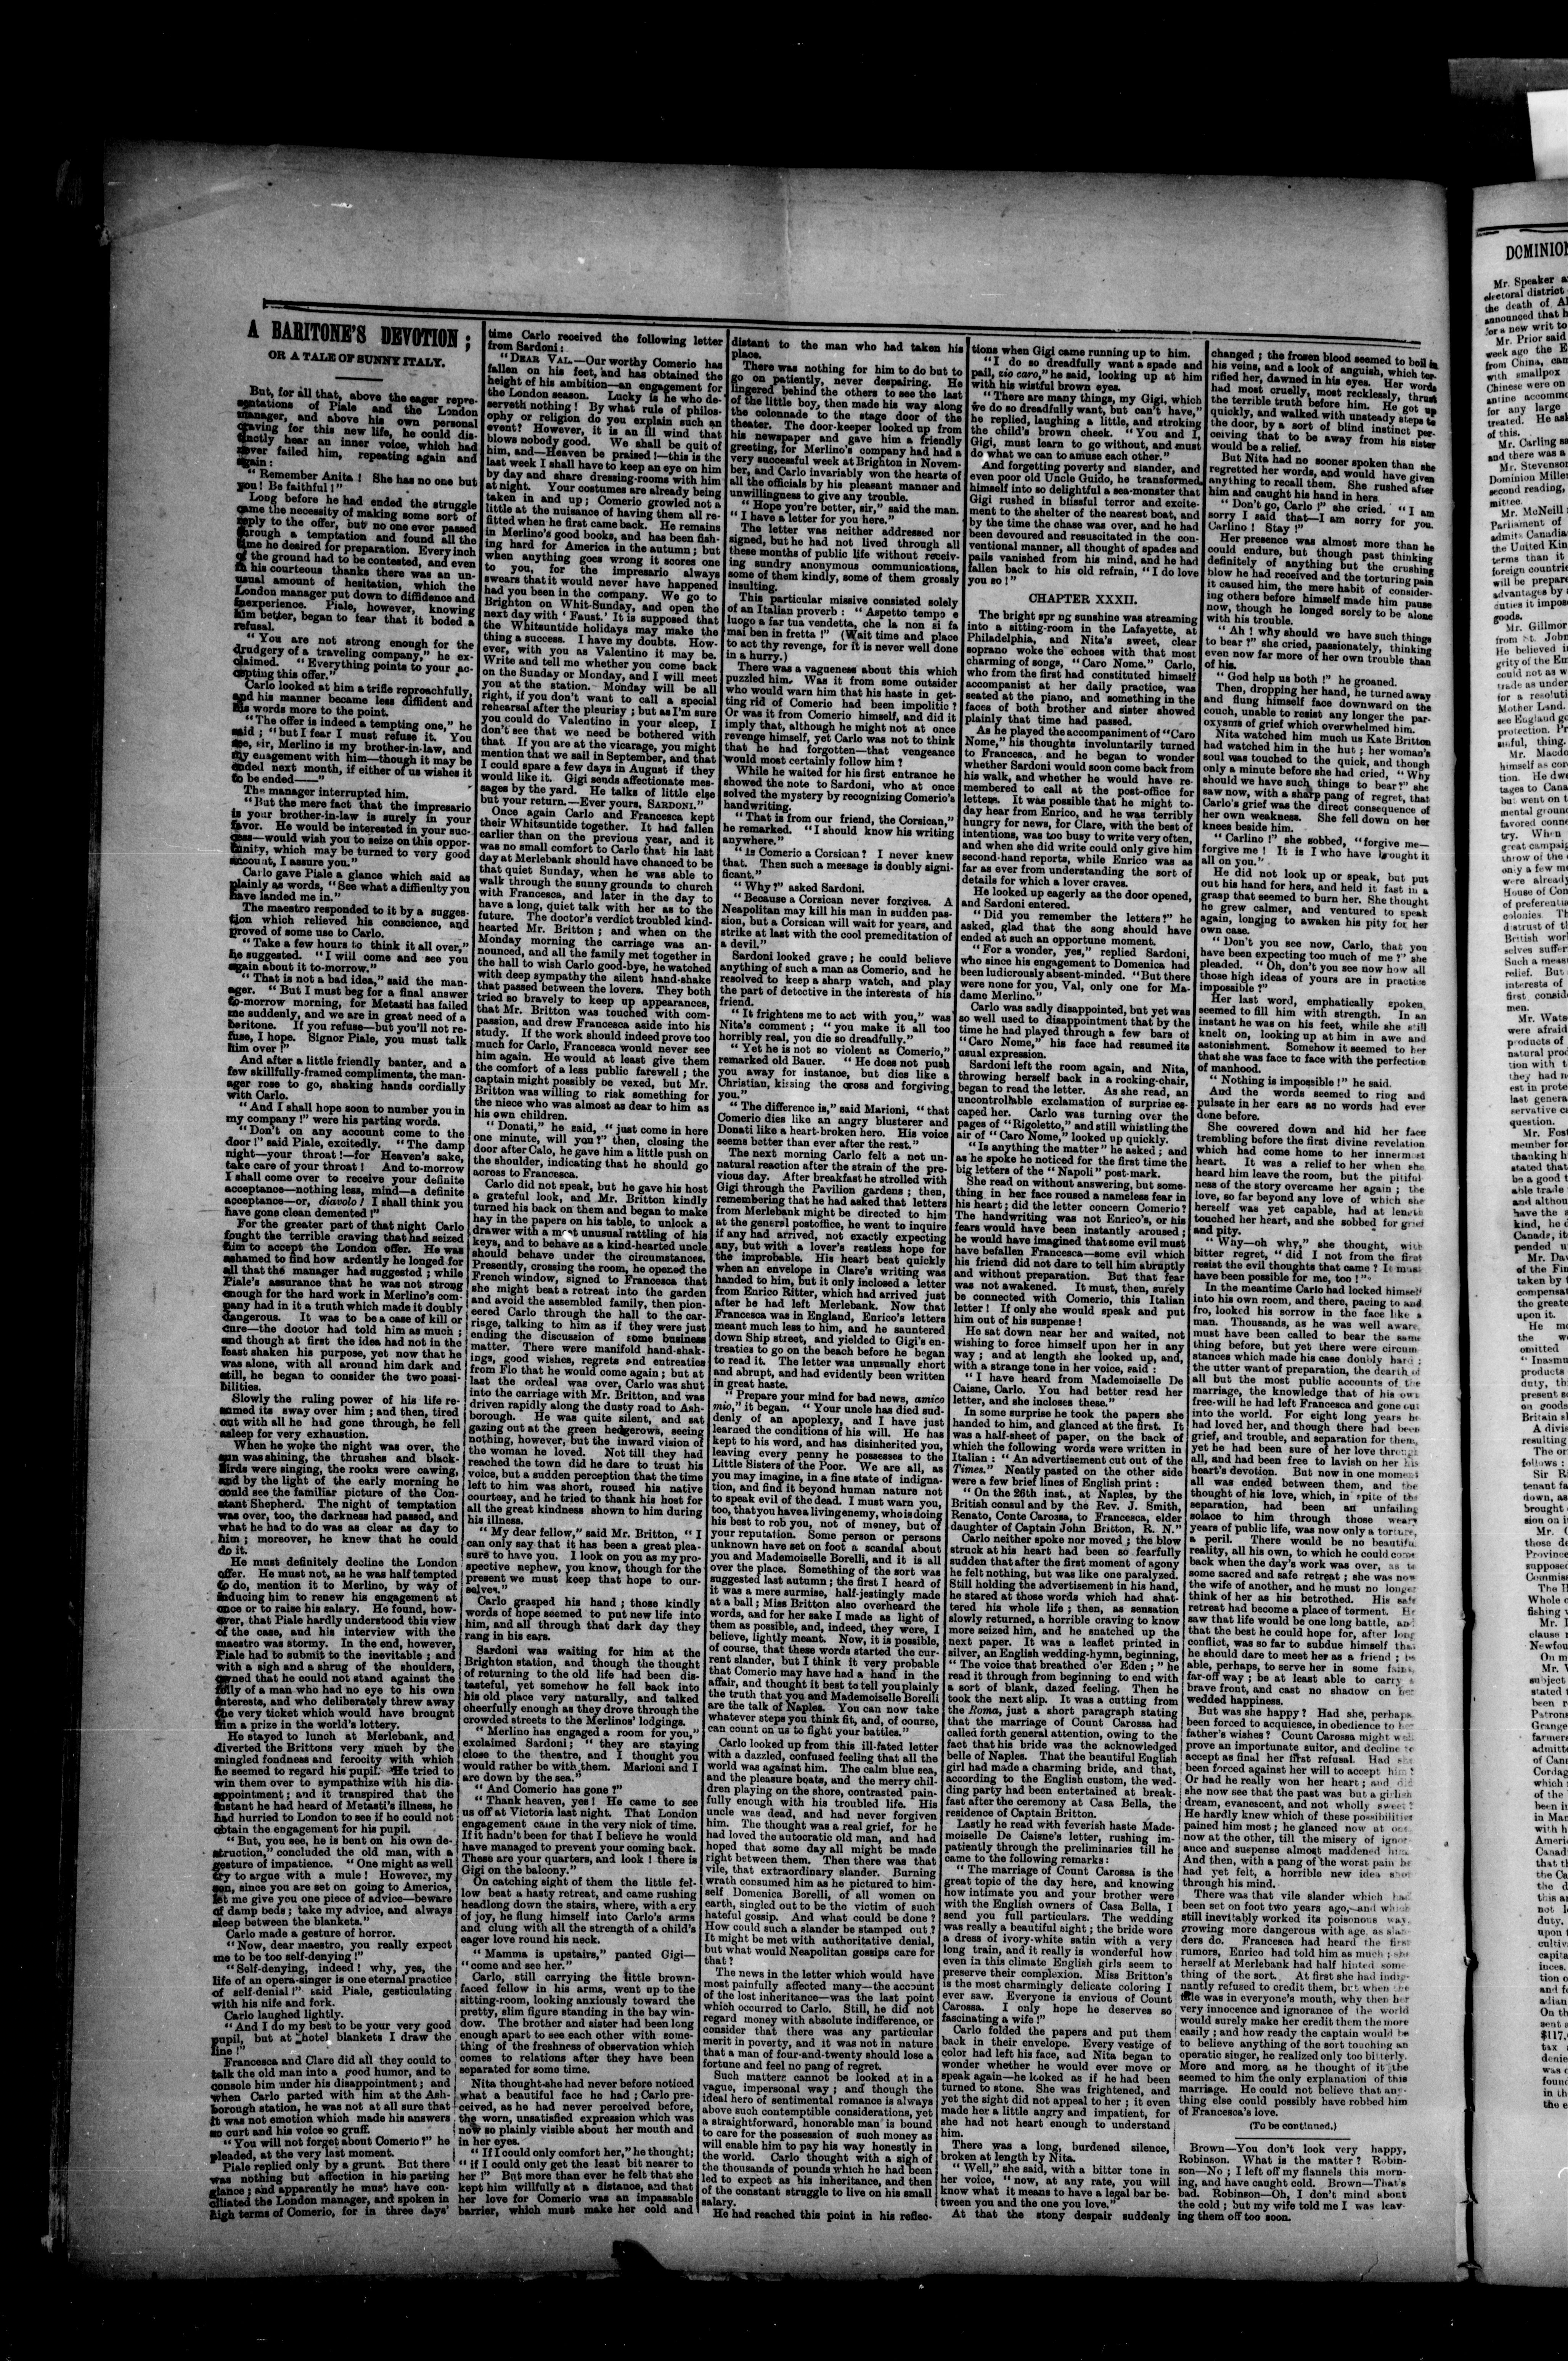 A BARITONE'S DEVOTION;
OR A TALE OF SUNNY ITALY.
But, for all that, above the eager repre-
sentations of Piale and the London
manager, and above his own personal
craving for this new life, he could dis-
tinctly hear an inner voice, which had
never failed him, repeating again and
again:
"Remember Anita! She has no one but
you! Be faithful!"
Long before he had ended the struggle
came the necessity of making some sort of
reply to the offer, but no one ever passed
through a temptation and found all the
time he desired for preparation. Every inch
of the ground had to be contested, and even
in his courteous thanks there was an un-
usual amount of hesitation, which the
London manager put down to diffidence and
inexperience. Piale, however, knowing
him better, began to fear that it boded a
refusal.
"You are not strong enough for the
drudgery of a traveling company," he ex-
claimed. "Everything points to your ac-
cepting this offer."
Carlo looked at him a trifle reproachfully,
and his manner became less diffident and
his words more to the point.
"The offer is indeed a tempting one," he
said; "but I fear I must refuse it. You
see, sir, Merlino is my brother-in-law, and
my enagement with him—though it may be
ended next month, if either of us wishes it
to be ended——"
The manager interrupted him.
"But the mere fact that the impresario
is your brother-in-law is surely in your
favor. He would be interested in your suc-
cess—would wish you to seize on this oppor-
tunity, which may be turned to very good
account, I assure you."
Carlo gave Piale a glance which said as
plainly as words, "See what a difficulty you
have landed me in."
The maestro responded to it by a sugges-
tion which relieved his conscience, and
proved of some use to Carlo.
"Take a few hours to think it all over,"
he suggested. "I will come and see you
again about it to-morrow."
"That is not a bad idea," said the man-
ager. "But I must beg for a final answer
to-morrow morning, for Metasti has failed
me suddenly, and we are in great need of a
baritone. If you refuse—but you'll not re-
fuse, I hope. Signor Piale, you must talk
him over!"
And after a little friendly banter, and a
few skillfully-framed compliments, the man-
ager rose to go, shaking hands cordially
with Carlo.
"And I shall hope soon to number you in
my company!" were his parting words.
"Don't on any account come to the
door!" said Piale, excitedly. "The damp
night—your throat!—for Heaven's sake,
take care of your throat! And to-morrow
I shall come over to receive your definite
acceptance—nothing less, mind—a definite
acceptance—or, diavolo! I shall think you
have gone clean demented!"
For the greater part of that night Carlo
fought the terrible craving that had seized
him to accept the London offer. He was
ashamed to find how ardently he longed for
all that the manager had suggested; while
Piale's assurance that he was not strong
enough for the hard work in Merlino's com-
pany had in it a truth which made it doubly
dangerous. It was to be a case of kill or
cure—the doctor had told him as much;
and though at first the idea had not in the
least shaken his purpose, yet now that he
was alone, with all around him dark and
still, he began to consider the two possi-
bilities.
Slowly the ruling power of his life re-
sumed its sway over him; and then, tired
out with all he had gone through, he fell
asleep for very exhaustion.
When he woke the night was over, the
sun was shining, the thrushes and black-
birds were singing, the rooks were cawing,
and by the light of the early morning he
could see the familiar picture of the Con-
stant Shepherd. The night of temptation
was over, too, the darkness had passed, and
what he had to do was as clear as day to
him; moreover, he knew that he could
do it.
He must definitely decline the London
offer. He must not, as he was half tempted
to do, mention it to Merlino, by way of
inducing him to renew his engagement at
once or to raise his salary. He found, how-
ever, that Piale hardly understood this view
of the case, and his interview with the
maestro was stormy. In the end, however,
Piale had to submit to the inevitable; and
with a sigh and a shrug of the shoulders,
owned that he could not stand against the
folly of a man who had no eye to his own
interests, and who deliberately threw away
the very ticket which would have brought
him a prize in the world's lottery.
He stayed to lunch at Merlebank, and
diverted the Brittons very much by the
mingled fondness and ferocity with which
he seemed to regard his pupil. He tried to
win them over to sympathize with his dis-
appointment; and it transpired that the
instant he had heard of Metasti's illness, he
had hurried to London to see if he could not
obtain the engagement for his pupil.
"But, you see, he is bent on his own de-
struction," concluded the old man, with a
gesture of impatience. "One might as well
try to argue with a mule! However, my
son, since you are set on going to America,
let me give you one piece of advice—beware
of damp beds; take my advice, and always
sleep between the blankets."
Carlo made a gesture of horror.
"Now, dear maestro, you really expect
me to be too self-denying!"
"Self-denying, indeed! why, yes, the
life of an opera-singer is one eternal practice
of self-denial!" said Piale, gesticulating
with his nife and fork.
Carlo laughed lightly.
"And I do my best to be your very good
pupil, but at hotel blankets I draw the
line!"
Francesca and Clare did all they could to
talk the old man into a good humor, and to
console him under his disappointment; and
when Carlo parted with him at the Ash-
borough station, he was not at all sure that
it was not emotion which made his answers
so curt and his voice so gruff.
"You will not forget about Comerio?" he
pleaded, at the very last moment.
Piale replied only by a grunt. But there
was nothing but affection in his parting
glance; and apparently he must have con-
ciliated the London manager, and spoken in
high terms of Comerio, for in three days'
time Carlo received the following letter
from Sardoni:
"DEAR VAL.—Our worthy Comerio has
fallen on his feet, and has obtained the
height of his ambition—an engagement for
the London season. Lucky is he who de-
serveth nothing! By what rule of philos-
ophy or religion do you explain such an
event? However, it is an ill wind that
blows nobody good. We shall be quit of
him, and—Heaven be praised!—this is the
last week I shall have to keep an eye on him
by day and share dressing-rooms with him
at night. Your costumes are already being
taken in and up; Comerio growled not a
little at the nuisance of having them all re-
fitted when he first came back. He remains
in Merlino's good books, and has been fish-
ing hard for America in the autumn; but
when anything goes wrong it scores one
to you, for the impresario always
swears that it would never have happened
had you been in the company. We go to
Brighton on Whit-Sunday, and open the
next day with 'Faust.' It is supposed that
the Whitsuntide holidays may make the
thing a success. I have my doubts. How-
ever, with you as Valentino it may be.
Write and tell me whether you come back
on the Sunday or Monday, and I will meet
you at the station. Monday will be all
right, if you don't want to call a special
rehearsal after the pleurisy; but as I'm sure
you could do Valentino in your sleep, I
don't see that we need be bothered with
that. If you are at the vicarage, you might
mention that we sail in September, and that
I could spare a few days in August if they
would like it. Gigi sends affectionate mes-
sages by the yard. He talks of little else
but your return.—Ever yours, SARDONI."
Once again Carlo and Francesca kept
their Whitsuntide together. It had fallen
earlier than on the previous year, and it
was no small comfort to Carlo that his last
day at Merlebank should have chanced to be
that quiet Sunday, when he was able to
walk through the sunny grounds to church
with Francesca, and later in the day to
have a long, quiet talk with her as to the
future. The doctor's verdict troubled kind-
hearted Mr. Britton; and when on the
Monday morning the carriage was an-
nounced, and all the family met together in
the hall to wish Carlo good-bye, he watched
with deep sympathy the silent hand-shake
that passed between the lovers. They both
tried so bravely to keep up appearances,
that Mr. Britton was touched with com-
passion, and drew Francesca aside into his
study. If the work should indeed prove too
much for Carlo, Francesca would never see
him again. He would at least give them
the comfort of a less public farewell; the
captain might possibly be vexed, but Mr.
Britton was willing to risk something for
the niece who was almost as dear to him as
his own children.
"Donati," he said, "just come in here
one minute, will you?" then, closing the
door after Calo, he gave him a little push on
the shoulder, indicating that he should go
across to Francesca.
Carlo did not speak, but he gave his host
a grateful look, and Mr. Britton kindly
turned his back on them and began to make
hay in the papers on his table, to unlock a
drawer with a most unusual rattling of his
keys, and to behave as a kind-hearted uncle
should behave under the circumstances.
Presently, crossing the room, he opened the
French window, signed to Francesca that
she might beat a retreat into the garden
and avoid the assembled family, then pion-
eered Carlo through the hall to the car-
riage, talking to him as if they were just
ending the discussion of some business
matter. There were manifold hand-shak-
ings, good wishes, regrets and entreaties
from Flo that he would come again; but at
last the ordeal was over, Carlo was shut
into the carriage with Mr. Britton, and was
driven rapidly along the dusty road to Ash-
borough. He was quite silent, and sat
gazing out at the green hedgerows, seeing
nothing, however, but the inward vision of
the woman he loved. Not till they had
reached the town did he dare to trust his
voice, but a sudden perception that the time
left to him was short, roused his native
courtesy, and he tried to thank his host for
all the great kindness shown to him during
his illness.
"My dear fellow," said Mr. Britton, "I
can only say that it has been a great plea-
sure to have you. I look on you as my pro-
spective nephew, you know, though for the
present we must keep that hope to our-
selves."
Carlo grasped his hand; those kindly
words of hope seemed to put new life into
him, and all through that dark day they
rang in his ears.
Sardoni was waiting for him at the
Brighton station, and though the thought
of returning to the old life had been dis-
tasteful, yet somehow he fell back into
his old place very naturally, and talked
cheerfully enough as they drove through the
crowded streets to the Merlinos' lodgings.
"Merlino has engaged a room for you,"
exclaimed Sardoni; "they are staying
close to the theatre, and I thought you
would rather be with them. Marioni and I
are down by the sea."
"And Comerio has gone?"
"Thank heaven, yes! He came to see
us off at Victoria last night. That London
engagement came in the very nick of time.
If it hadn't been for that I believe he would
have managed to prevent your coming back.
These are your quarters, and look! there is
Gigi on the balcony."
On catching sight of them the little fel-
low beat a hasty retreat, and came rushing
headlong down the stairs, where, with a cry
of joy, he flung himself into Carlo's arms
and clung with all the strength of a child's
eager love round his neck.
"Mamma is upstairs," panted Gigi—
"come and see her."
Carlo, still carrying the little brown-
faced fellow in his arms, went up to the
sitting-room, looking anxiously toward the
pretty, slim figure standing in the bay win-
dow. The brother and sister had been long
enough apart to see each other with some-
thing of the freshness of observation which
comes to relations after they have been
separated for some time.
Nita thought she had never before noticed
what a beautiful face he had; Carlo per-
ceived, as he had never perceived before,
the worn, unsatisfied expression which was
now so plainly visible about her mouth and
in her eyes.
"If I could only comfort her," he thought;
"if I could only get the least bit nearer to
her!" But more than ever he felt that she
kept him willfully at a distance, and that
her love for Comerio was an impassable
barrier, which must make her cold and
distant to the man who had taken his
place.
There was nothing for him to do but to
go on patiently, never despairing. He
lingered behind the others to see the last
of the little boy, then made his way along
the colonnade to the stage door of the
theater. The door-keeper looked up from
his newspaper and gave him a friendly
greeting, for Merlino's company had had a
very successful week at Brighton in Novem-
ber, and Carlo invariably won the hearts of
all the officials by his pleasant manner and
unwillingness to give any trouble.
"Hope you're better, sir," said the man.
"I have a letter for you here."
The letter was neither addressed nor
signed, but he had not lived through all
these months of public life without receiv-
ing sundry anonymous communications,
some of them kindly, some of them grossly
insulting.
This particular missive consisted solely
of an Italian proverb: "Aspetto tempo e
luogo a far tua vendetta, che la non si fa
mai ben in fretta!" (Wait time and place
to act thy revenge, for it is never well done
in a hurry.)
There was a vagueness about this which
puzzled him. Was it from some outsider
who would warn him that his haste in get-
ting rid of Comerio had been impolitic?
Or was it from Comerio himself, and did it
imply that, although he might not at once
revenge himself, yet Carlo was not to think
that he had forgotten—that vengeance
would most certainly follow him?
While he waited for his first entrance he
showed the note to Sardoni, who at once
solved the mystery by recognizing Comerio's
handwriting.
"That is from our friend, the Corsican,"
he remarked. "I should know his writing
anywhere."
"Is Comerio a Corsican? I never knew
that. Then such a message is doubly signi-
ficant."
"Why?" asked Sardoni.
"Because a Corsican never forgives. A
Neapolitan may kill his man in sudden pas-
sion, but a Corsican will wait for years, and
strike at last with the cool premeditation of
a devil."
Sardoni looked grave; he could believe
anything of such a man as Comerio, and he
resolved to keep a sharp watch, and play
the part of detective in the interests of his
friend.
"It frightens me to act with you," was
Nita's comment; "you make it all too
horribly real, you die so dreadfully."
"Yet he is not so violent as Comerio,"
remarked old Bauer. "He does not push
you away for instance, but dies like a
Christian, kissing the cross and forgiving
you."
"The difference is," said Marioni, "that
Comerio dies like an angry blusterer and
Donati like a heart-broken hero. His voice
seems better than ever after the rest."
The next morning Carlo felt a not un-
natural reaction after the strain of the pre-
vious day. After breakfast he strolled with
Gigi through the Pavilion gardens; then,
remembering that he had asked that letters
from Merlebank might be directed to him
at the general postoffice, he went to inquire
if any had arrived, not exactly expecting
any, but with a lover's restless hope for
the improbable. His heart beat quickly
when an envelope in Clare's writing was
handed to him, but it only inclosed a letter
from Enrico Ritter, which had arrived just
after he had left Merlebank. Now that
Francesca was in England, Enrico's letters
meant much less to him, and he sauntered
down Ship street, and yielded to Gigi's en-
treaties to go on the beach before he began
to read it. The letter was unusually short
and abrupt, and had evidently been written
in great haste.
"Prepare your mind for bad news, amico
mio," it began. "Your uncle has died sud-
denly of an apoplexy, and I have just
learned the conditions of his will. He has
kept to his word, and has disinherited you,
leaving every penny he possesses to the
Little Sisters of the Poor. We are all, as
you may imagine, in a fine state of indigna-
tion, and find it beyond human nature not
to speak evil of the dead. I must warn you,
too, that you have a living enemy, who is doing
his best to rob you, not of money, but of
your reputation. Some person or persons
unknown have set on foot a scandal about
you and Mademoiselle Borelli, and it is all
over the place. Something of the sort was
suggested last autumn; the first I heard of
it was a mere surmise, half-jestingly made
at a ball; Miss Britton also overheard the
words, and for her sake I made as light of
them as possible, and, indeed, they were, I
believe, lightly meant. Now, it is possible,
of course, that these words started the cur-
rent slander, but I think it very probable
that Comerio may have had a hand in the
affair, and thought it best to tell you plainly
the truth that you and Mademoiselle Borelli
are the talk of Naples. You can now take
whatever steps you think fit, and, of course,
can count on us to fight your battles."
Carlo looked up from this ill-fated letter
with a dazzled, confused feeling that all the
world was against him. The calm blue sea,
and the pleasure boats, and the merry chil-
dren playing on the shore, contrasted pain-
fully enough with his troubled life. His
uncle was dead, and had never forgiven
him. The thought was a real grief, for he
had loved the autocratic old man, and had
hoped that some day all might be made
right between them. Then there was that
vile, that extraordinary slander. Burning
wrath consumed him as he pictured to him-
self Domenica Borelli, of all women on
earth, singled out to be the victim of such
hateful gossip. And what could be done?
How could such a slander be stamped out?
It might be met with authoritative denial,
but what would Neapolitan gossips care for
that?
The news in the letter which would have
most painfully affected many—the account
of the lost inheritance—was the last point
which occurred to Carlo. Still, he did not
regard money with absolute indifference, or
consider that there was any particular
merit in poverty, and it was not in nature
that a man of four-and-twenty should lose a
fortune and feel no pang of regret.
Such matters cannot be looked at in a
vague, impersonal way; and though the
ideal hero of sentimental romance is always
above such contemptible considerations, yet
a straightforward, honorable man is bound
to care for the possession of such money as
will enable him to pay his way honestly in
the world. Carlo thought with a sigh of
the thousands of pounds which he had been
led to expect as his inheritance, and then
of the constant struggle to live on his small
salary.
He had reached this point in his reflec-
tions when Gigi came running up to him.
"I do so dreadfully want a spade and
pail, zio caro," he said, looking up at him
with his wistful brown eyes.
"There are many things, my Gigi, which
we do so dreadfully want, but can't have,"
he replied, laughing a little, and stroking
the child's brown cheek. "You and I,
Gigi, must learn to go without, and must
do what we can to amuse each other."
And forgetting poverty and slander, and
even poor old Uncle Guido, he transformed
himself into so delightful a sea-monster that
Gigi rushed in blissful terror and excite-
ment to the shelter of the nearest boat, and
by the time the chase was over, and he had
been devoured and resuscitated in the con-
ventional manner, all thought of spades and
pails vanished from his mind, and he had
fallen back to his old refrain, "I do love
you so!"
CHAPTER XXXII.
The bright spr ng sunshine was streaming
into a sitting-room in the Lafayette, at
Philadelphia, and Nita's sweet, clear
soprano woke the echoes with that most
charming of songs, "Caro Nome." Carlo,
who from the first had constituted himself
accompanist at her daily practice, was
seated at the piano, and something in the
faces of both brother and sister showed
plainly that time had passed.
As he played the accompaniment of "Caro
Nome," his thoughts involuntarily turned
to Francesca, and he began to wonder
whether Sardoni would soon come back from
his walk, and whether he would have re-
membered to call at the post-office for
letters. It was possible that he might to-
day hear from Enrico, and he was terribly
hungry for news, for Clare, with the best of
intentions, was too busy to write very often,
and when she did write could only give him
second-hand reports, while Enrico was as
far as ever from understanding the sort of
details for which a lover craves.
He looked up eagerly as the door opened,
and Sardoni entered.
"Did you remember the letters?" he
asked, glad that the song should have
ended at such an opportune moment.
"For a wonder, yes," replied Sardoni,
who since his engagement to Domenica had
been ludicrously absent-minded. "But there
were none for you, Val, only one for Ma-
dame Merlino."
Carlo was sadly disappointed, but yet was
so well used to disappointment that by the
time he had played through a few bars of
"Caro Nome," his face had resumed its
usual expression.
Sardoni left the room again, and Nita,
throwing herself back in a rocking-chair,
began to read the letter. As she read, an
uncontrolhable exclamation of surprise es-
caped her. Carlo was turning over the
pages of "Rigoletto," and still whistling the
air of "Caro Nome," looked up quickly.
"Is anything the matter" he asked; and
as he spoke he noticed for the first time the
big letters of the "Napoli" post-mark.
She read on without answering, but some-
thing in her face roused a nameless fear in
his heart; did the letter concern Comerio?
The handwriting was not Enrico's, or his
fears would have been instantly aroused;
he would have imagined that some evil must
have befallen Francesca—some evil which
his friend did not dare to tell him abruptly
and without preparation. But that fear
was not awakened. It must, then, surely
be connected with Comerio, this Italian
letter! If only she would speak and put
him out of his suspense!
He sat down near her and waited, not
wishing to force himself upon her in any
way; and at length she looked up, and,
with a strange tone in her voice, said:
"I have heard from Mademoiselle De
Caisne, Carlo. You had better read her
letter, and she incloses these."
In some surprise he took the papers she
handed to him, and glanced at the first. It
was a half-sheet of paper, on the back of
which the following words were written in
Italian: "An advertisement cut out of the
Times." Neatly pasted on the other side
were a few brief lines of English print:
"On the 26th inst., at Naples, by the
British consul and by the Rev. J. Smith,
Renato, Conte Carossa, to Francesca, elder
daughter of Captain John Britton, R. N."
Carlo neither spoke nor moved; the blow
struck at his heart had been so fearfully
sudden that after the first moment of agony
he felt nothing, but was like one paralyzed.
Still holding the advertisement in his hand,
he stared at those words which had shat-
tered his whole life; then, as sensation
slowly returned, a horrible craving to know
more seized him, and he snatched up the
next paper. It was a leaflet printed in
silver, an English wedding-hymn, beginning,
"The voice that breathed o'er Eden;" he
read it through from beginning to end with
a sort of blank, dazed feeling. Then he
took the next slip. It was a cutting from
the Roma, just a short paragraph stating
that the marriage of Count Carossa had
called forth general attention, owing to the
fact that his bride was the acknowledged
belle of Naples. That the beautiful English
girl had made a charming bride, and that,
according to the English custom, the wed-
ding party had been entertained at break-
fast after the ceremony at Casa Bella, the
residence of Captain Britton.
Lastly he read with feverish haste Made-
moiselle De Caisne's letter, rushing im-
patiently through the preliminaries till he
came to the following remarks:
"The marriage of Count Carossa is the
great topic of the day here, and knowing
how intimate you and your brother were
with the English owners of Casa Bella, I
send you full particulars. The wedding
was really a beautiful sight; the bride wore
a dress of ivory-white satin with a very
long train, and it really is wonderful how
even in this climate English girls seem to
preserve their complexion. Miss Britton's
is the most charmingly delicate coloring I
ever saw. Everyone is envious of Count
Carossa. I only hope he deserves so
fascinating a wife!"
Carlo folded the papers and put them
back in their envelope. Every vestige of
color had left his face, and Nita began to
wonder whether he would ever move or
speak again—he looked as if he had been
turned to stone. She was frightened, and
yet the sight did not appeal to her; it even
made her a little angry and impatient, for
she had not heart enough to understand
him.
There was a long, burdened silence,
broken at length by Nita.
"Well," she said, with a bitter tone in
her voice, "now, at any rate, you will
know what it means to have a legal bar be-
tween you and the one you love."
At that the stony despair suddenly
changed; the frozen blood seemed to boil in
his veins, and a look of anguish, which ter-
rified her, dawned in his eyes. Her words
had most cruelly, most recklessly, thrust
the terrible truth before him. He got up
quickly, and walked with unsteady steps to
the door, by a sort of blind instinct per-
ceiving that to be away from his sister
would be a relief.
But Nita had no sooner spoken than she
regretted her words, and would have given
anything to recall them. She rushed after
him and caught his hand in hers.
"Don't go, Carlo!" she cried. "I am
sorry I said that—I am sorry for you.
Carlino! Stay!"
Her presence was almost more than he
could endure, but though past thinking
definitely of anything but the crushing
blow he had received and the torturing pain
it caused him, the mere habit of consider-
ing others before himself made him pause
now, though he longed sorely to be alone
with his trouble.
"Ah! why should we have such things
to bear?" she cried, passionately, thinking
even now far more of her own trouble than
of his.
"God help us both!" he groaned.
Then, dropping her hand, he turned away
and flung himself face downward on the
couch, unable to resist any longer the par-
oxysm of grief which overwhelmed him.
Nita watched him much us Kate Britton
had watched him in the hut; her woman's
soul was touched to the quick, and though
only a minute before she had cried, "Why
should we have such things to bear?" she
saw now, with a sharp pang of regret, that
Carlo's grief was the direct consequence of
her own weakness. She fell down on her
knees beside him.
"Carlino!" she sobbed, "forgive me—
forgive me! It is I who have brought it
all on you."
He did not look up or speak, but put
out his hand for hers, and held it fast in a
grasp that seemed to burn her. She thought
he grew calmer, and ventured to speak
again, longing to awaken his pity for her
own case.
"Don't you see now, Carlo, that you
have been expecting too much of me?" she
pleaded. "Oh, don't you see now how all
those high ideas of yours are in practice
impossible?"
Her last word, emphatically spoken,
seemed to fill him with strength. In an
instant he was on his feet, while she still
knelt on, looking up at him in awe and
astonishment. Somehow it seemed to her
that she was face to face with the perfection
of manhood.
"Nothing is impossible!" he said.
And the words seemed to ring and
pulsate in her ears as no words had ever
done before.
She cowered down and hid her face
trembling before the first divine revelation
which had come home to her innermost
heart. It was a relief to her when she
heard him leave the room, but the pitiful-
ness of the story overcame her again; the
love, so far beyond any love of which she
herself was yet capable, had at length
touched her heart, and she sobbed for grief
and pity.
"Why—oh why," she thought, with
bitter regret, "did I not from the first
resist the evil thoughts that came? It must
have been possible for me, too!"
In the meantime Carlo had locked himself
into his own room, and there, pacing to and
fro, looked his sorrow in the face like a
man. Thousands, as he was well aware,
must have been called to bear the same
thing before, but yet there were circum-
stances which made his case doubly hard;
the utter want of preparation, the dearth of
all but the most public accounts of the
marriage, the knowledge that of his own
free-will he had left Francesca and gone out
into the world. For eight long years he
had loved her, and though there had been
grief, and trouble, and separation for them,
yet he had been sure of her love through
all, and had been free to lavish on her his
heart's devotion. But now in one moment
all was ended between them, and the
thought of his love, which, in spite of the
separation, had been an unfailing
solace to him through those weary
years of public life, was now only a torture,
a peril. There would be no beautiful
reality, all his own, to which he could come
back when the day's work was over, as to
some sacred and safe retreat; she was now
the wife of another, and he must no longer
think of her as his betrothed. His safe
retreat had become a place of torment. He
saw that life would be one long battle, and
that the best he could hope for, after long
conflict, was so far to subdue himself that
he should dare to meet her as a friend; be
able, perhaps, to serve her in some faint,
far-off way; be at least able to carry a
brave front, and cast no shadow on her
wedded happiness.
But was she happy? Had she, perhaps,
been forced to acquiesce, in obedience to her
father's wishes? Count Carossa might well
prove an importunate suitor, and decline to
accept as final her first refusal. Had she
been forced against her will to accept him?
Or had he really won her heart; and did
she now see that the past was but a girlish
dream, evanescent, and not wholly sweet?
He hardly knew which of these possibilities
pained him most; he glanced now at one,
now at the other, till the misery of ignor-
ance and suspense almost maddened him.
And then, with a pang of the worst pain he
had yet felt, a horrible new idea shot
through his mind.
There was that vile slander which had
been set on foot two years ago, and which
still inevitably worked its poisonous way,
growing more dangerous with age, as slan-
ders do. Francesca had heard the first
rumors, Enrico had told him as much; she
herself at Merlebank had half hinted some-
thing of the sort. At first she had indig-
nantly refused to credit them, but when the
tale was in everyone's mouth, why then her
very innocence and ignorance of the world
would surely make her credit them the more
easily; and how ready the captain would be
to believe anything of the sort touching an
operatic singer, he realized only too bitterly.
More and more, as he thought of it, the
seemed to him the only explanation of this
marriage. He could not believe that any-
thing else could possibly have robbed him
of Francesca's love.
(To be continued.)
Brown—You don't look very happy,
Robinson. What is the matter? Robin-
son—No; I left off my flannels this morn-
ing, and have caught cold. Brown—That's
bad. Robinson—Oh, I don't mind about
the cold; but my wife told me I was leav-
ing them off too soon.
DOMINION
Mr. Speaker
electoral district
the death of
announced that
for a new writ to
Mr. Prior said
week ago the
from China,
with smallpox
Chinese were on
for any large
of this.
Mr. Carling
and there was a
Mr. Stevenson
Dominion
second reading,
Mr. McNeill
Parliament of
the United
Mr. Gillmor
from St. John